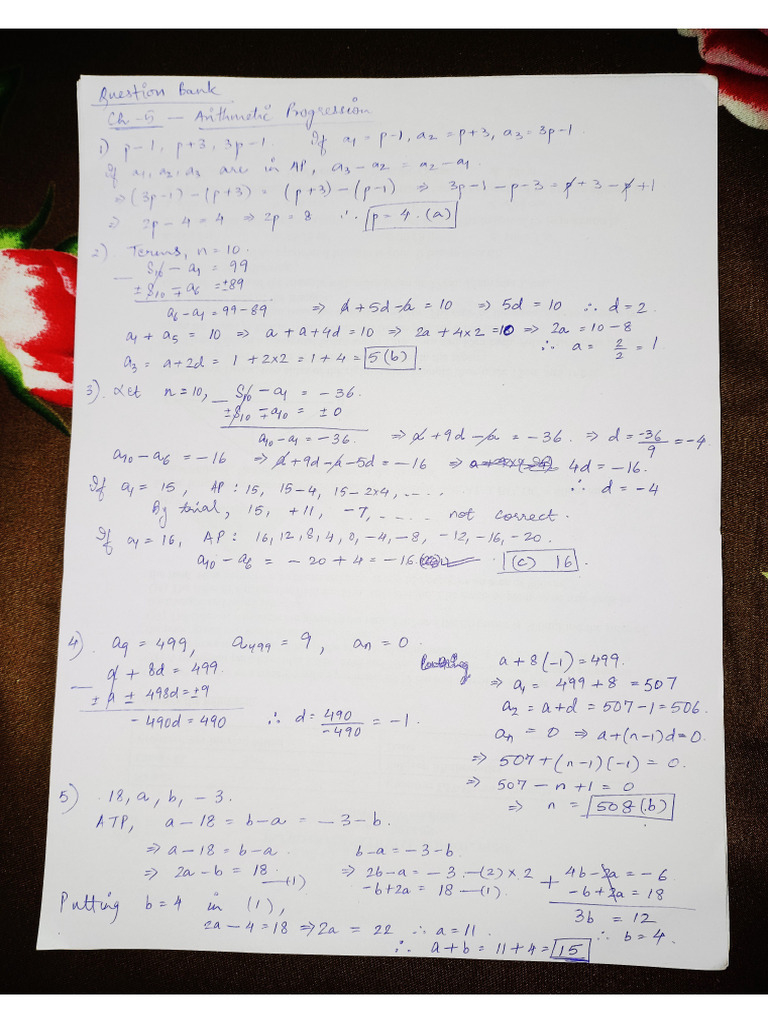 Question Bank
Ch-5 — Arithmetic Progression
1) p-1, p+3, 3p-1. If a₁ = p-1, a₂ = p+3, a₃ = 3p-1
If a₁, a₂, a₃ are in AP, a₃ - a₂ = a₂ - a₁.
⇒ (3p-1) - (p+3) = (p+3) - (p-1) ⇒ 3p-1-p-3 = p+3-p+1
⇒ 2p-4 = 4 ⇒ 2p = 8 ∴ p = 4. (a)
2) Terms, n = 10.
S₁₀ - a₁ = 99
± S₁₀ ∓ a₆ = ±89
a₆ - a₁ = 99-89 ⇒ a + 5d - a = 10 ⇒ 5d = 10 ∴ d = 2.
a₁ + a₅ = 10 ⇒ a + a + 4d = 10 ⇒ 2a + 4×2 = 10 ⇒ 2a = 10-8
∴ a = 2/2 = 1
a₃ = a + 2d = 1 + 2×2 = 1 + 4 = 5 (b)
3). Let n = 10, S₁₀ - a₁ = -36.
± S₁₀ ∓ a₁₀ = ± 0
a₁₀ - a₁ = -36. ⇒ a + 9d - a = -36. ⇒ d = -36/9 = -4
a₁₀ - a₆ = -16 ⇒ a + 9d - a - 5d = -16 ⇒ 4d = -16.
∴ d = -4
If a₁ = 15, AP : 15, 15-4, 15-2×4, .....
By trial, 15, +11, -7, ..... not correct.
If a₁ = 16, AP : 16, 12, 8, 4, 0, -4, -8, -12, -16, -20.
a₁₀ - a₆ = -20 + 4 = -16. (c) 16.
4). a₉ = 499, a₄₉₉ = 9, aₙ = 0.
a + 8d = 499.
± a ± 498d = ±9
- 490d = 490 ∴ d = 490/-490 = -1.
a + 8(-1) = 499.
⇒ a₁ = 499 + 8 = 507
a₂ = a + d = 507 - 1 = 506.
aₙ = 0 ⇒ a + (n-1)d = 0.
⇒ 507 + (n-1)(-1) = 0.
⇒ 507 - n + 1 = 0
⇒ n = 508 (b)
5) 18, a, b, -3.
ATP, a - 18 = b - a = -3 - b.
⇒ a - 18 = b - a. b - a = -3 - b.
⇒ 2a - b = 18. —(1) ⇒ 2b - a = -3. —(2) × 2
-b + 2a = 18 —(1).
+ 4b - 2a = -6
-b + 2a = 18
3b = 12
∴ b = 4.
Putting b = 4 in (1),
2a - 4 = 18 ⇒ 2a = 22 ∴ a = 11.
∴ a + b = 11 + 4 = 15